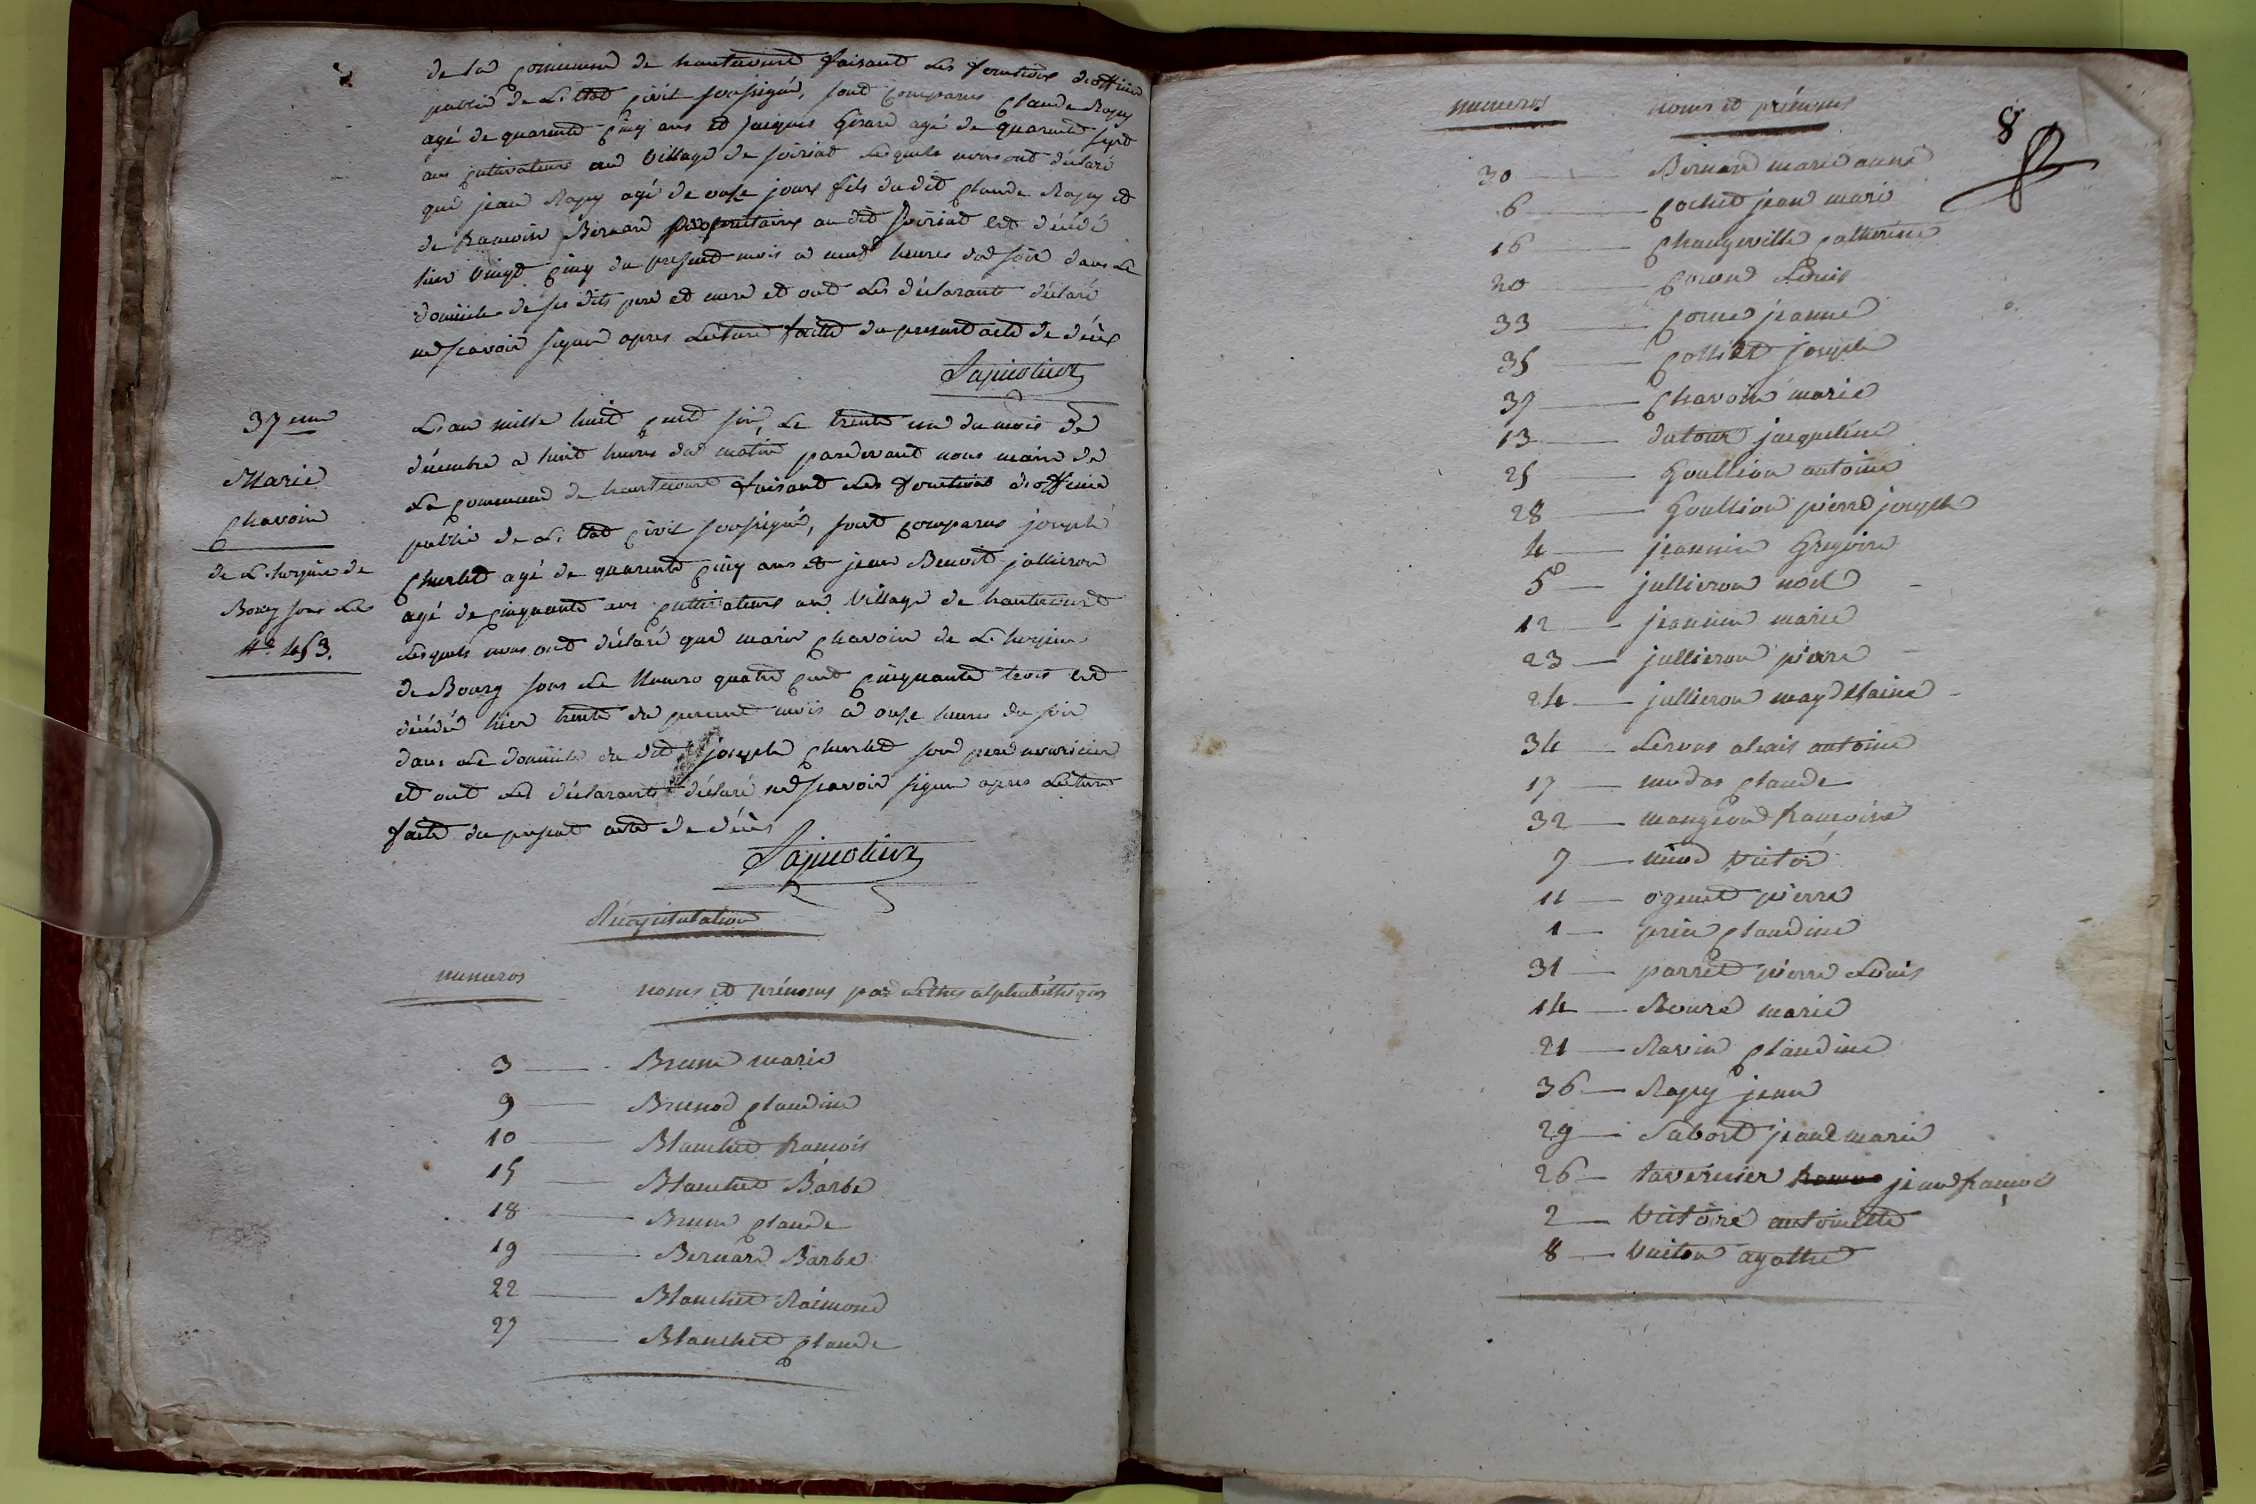 de la commune de hautecourt faisant les fonctions d'officier
public de L'Etat civil soussigné, sont comparus Claude Ragy
agé de quarente cinq ans et jacques Gérard agé de quarente sept
ans cultivateurs au village de soiriat lesquels nous ont déclaré
que jean Ragy agé de onse jours fils du dit Claude Ragy et
de francoise Bernard propriétaires au dit soiriat est décédé
hier vingt cinq du present mois a neuf heures du soir dans le
domicile de ses dits pere et mere et ont les déclarants déclaré
ne scavoir signer apres lecture faitte du present acte de décès
37eme
Marie
Chavoin
de L'hospice de
Bourg sous le
No 453.
L'an mille huit cent six, le trente un du mois de
décembre a huit heures du matin pardevant nous maire de
la commune de hautecourt faisant les fonctions d'officier
public de L'Etat civil soussigné, sont comparus joseph
Charlet agé de quarente cinq ans et jean Benoit jullieron
agé de cinquante ans cultivateurs au village de hautecourt
lesquels nous ont déclaré que marie Chavoin de L'hospice
de Bourg sous le Numero quatre cent cinquante trois est
décédé hier trente du present mois a onse heures du soir
dans le domicile du dit joseph Charlet son pere nouricier
et ont les déclarants déclaré ne scavoir signer apres lecture
faite du present acte de décès
Récapitulation
numeros
noms et prénoms par lettres alphabéthiques
3 Brun marie
9 Brunod Claudine
10 Blanchet francois
15 Blanchet Barbe
18 Brun Claude
19 Bernard Barbe
22 Blanchet Raimond
27 Blanchet Claude
8
numeros noms et prénoms
30 Bernard marie anne
6 Cochet jean marie
16 Changeville Catherine
20 Louis
33 jeanne
35 Colliet joseph
37 Chavoin marie
13 dutour jacqueline
25 Goullion antoine
28 Goullion pierre joseph
4 jeannin Gregoire
5 jullieron noel
12 jeannin marie
23 jullieron pierre
24 jullieron magdelaine
34 alexis antoine
17 Claude
32 mangeon francoise
7 victor
11 ogenet pierre
1 Claudine
31 parret pierre Louis
14 marie
21 Ravin Claudine
36 Ragy jean
29 Sabort jean marie
26 tavernier jean francois
2 Victoire antoinette
8 Vuiton agathe